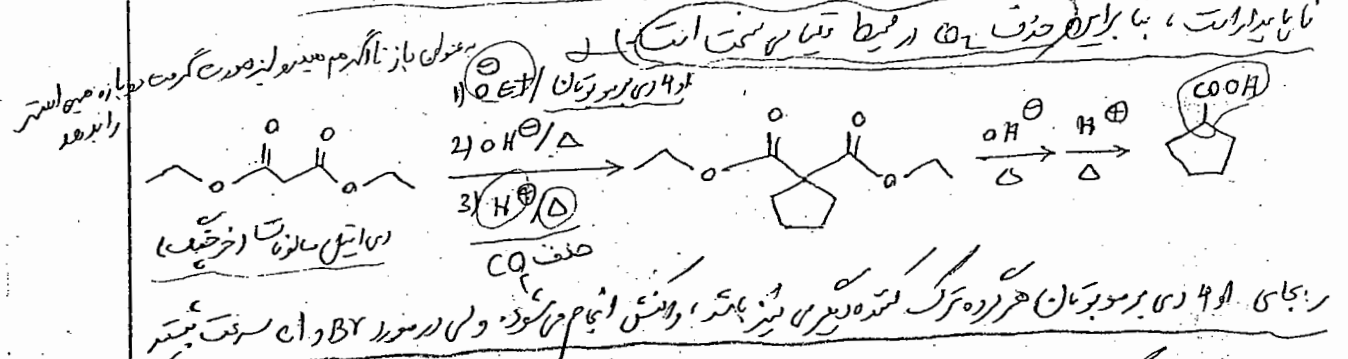 ناپایدار است، بنابراین حذف CO2 در محیط قلیایی سخت است
به عنوان باز تا اگر هم هیدرولیز صورت گرفت دوباره همان استر
را بدهد
1) OEt⊖ / 1و4 دی برمو بوتان
2) OH⊖/Δ
3) H⊕/Δ
حذف CO2
دی اتیل مالونات (خرچنگ)
OH⊖ Δ
H⊕ Δ
COOH
بجای 1و4 دی برمو بوتان هر گروه ترک کننده دیگری نیز باشد، واکنش انجام می‌شود. ولی در مورد Br و Cl سرعت بیشتر